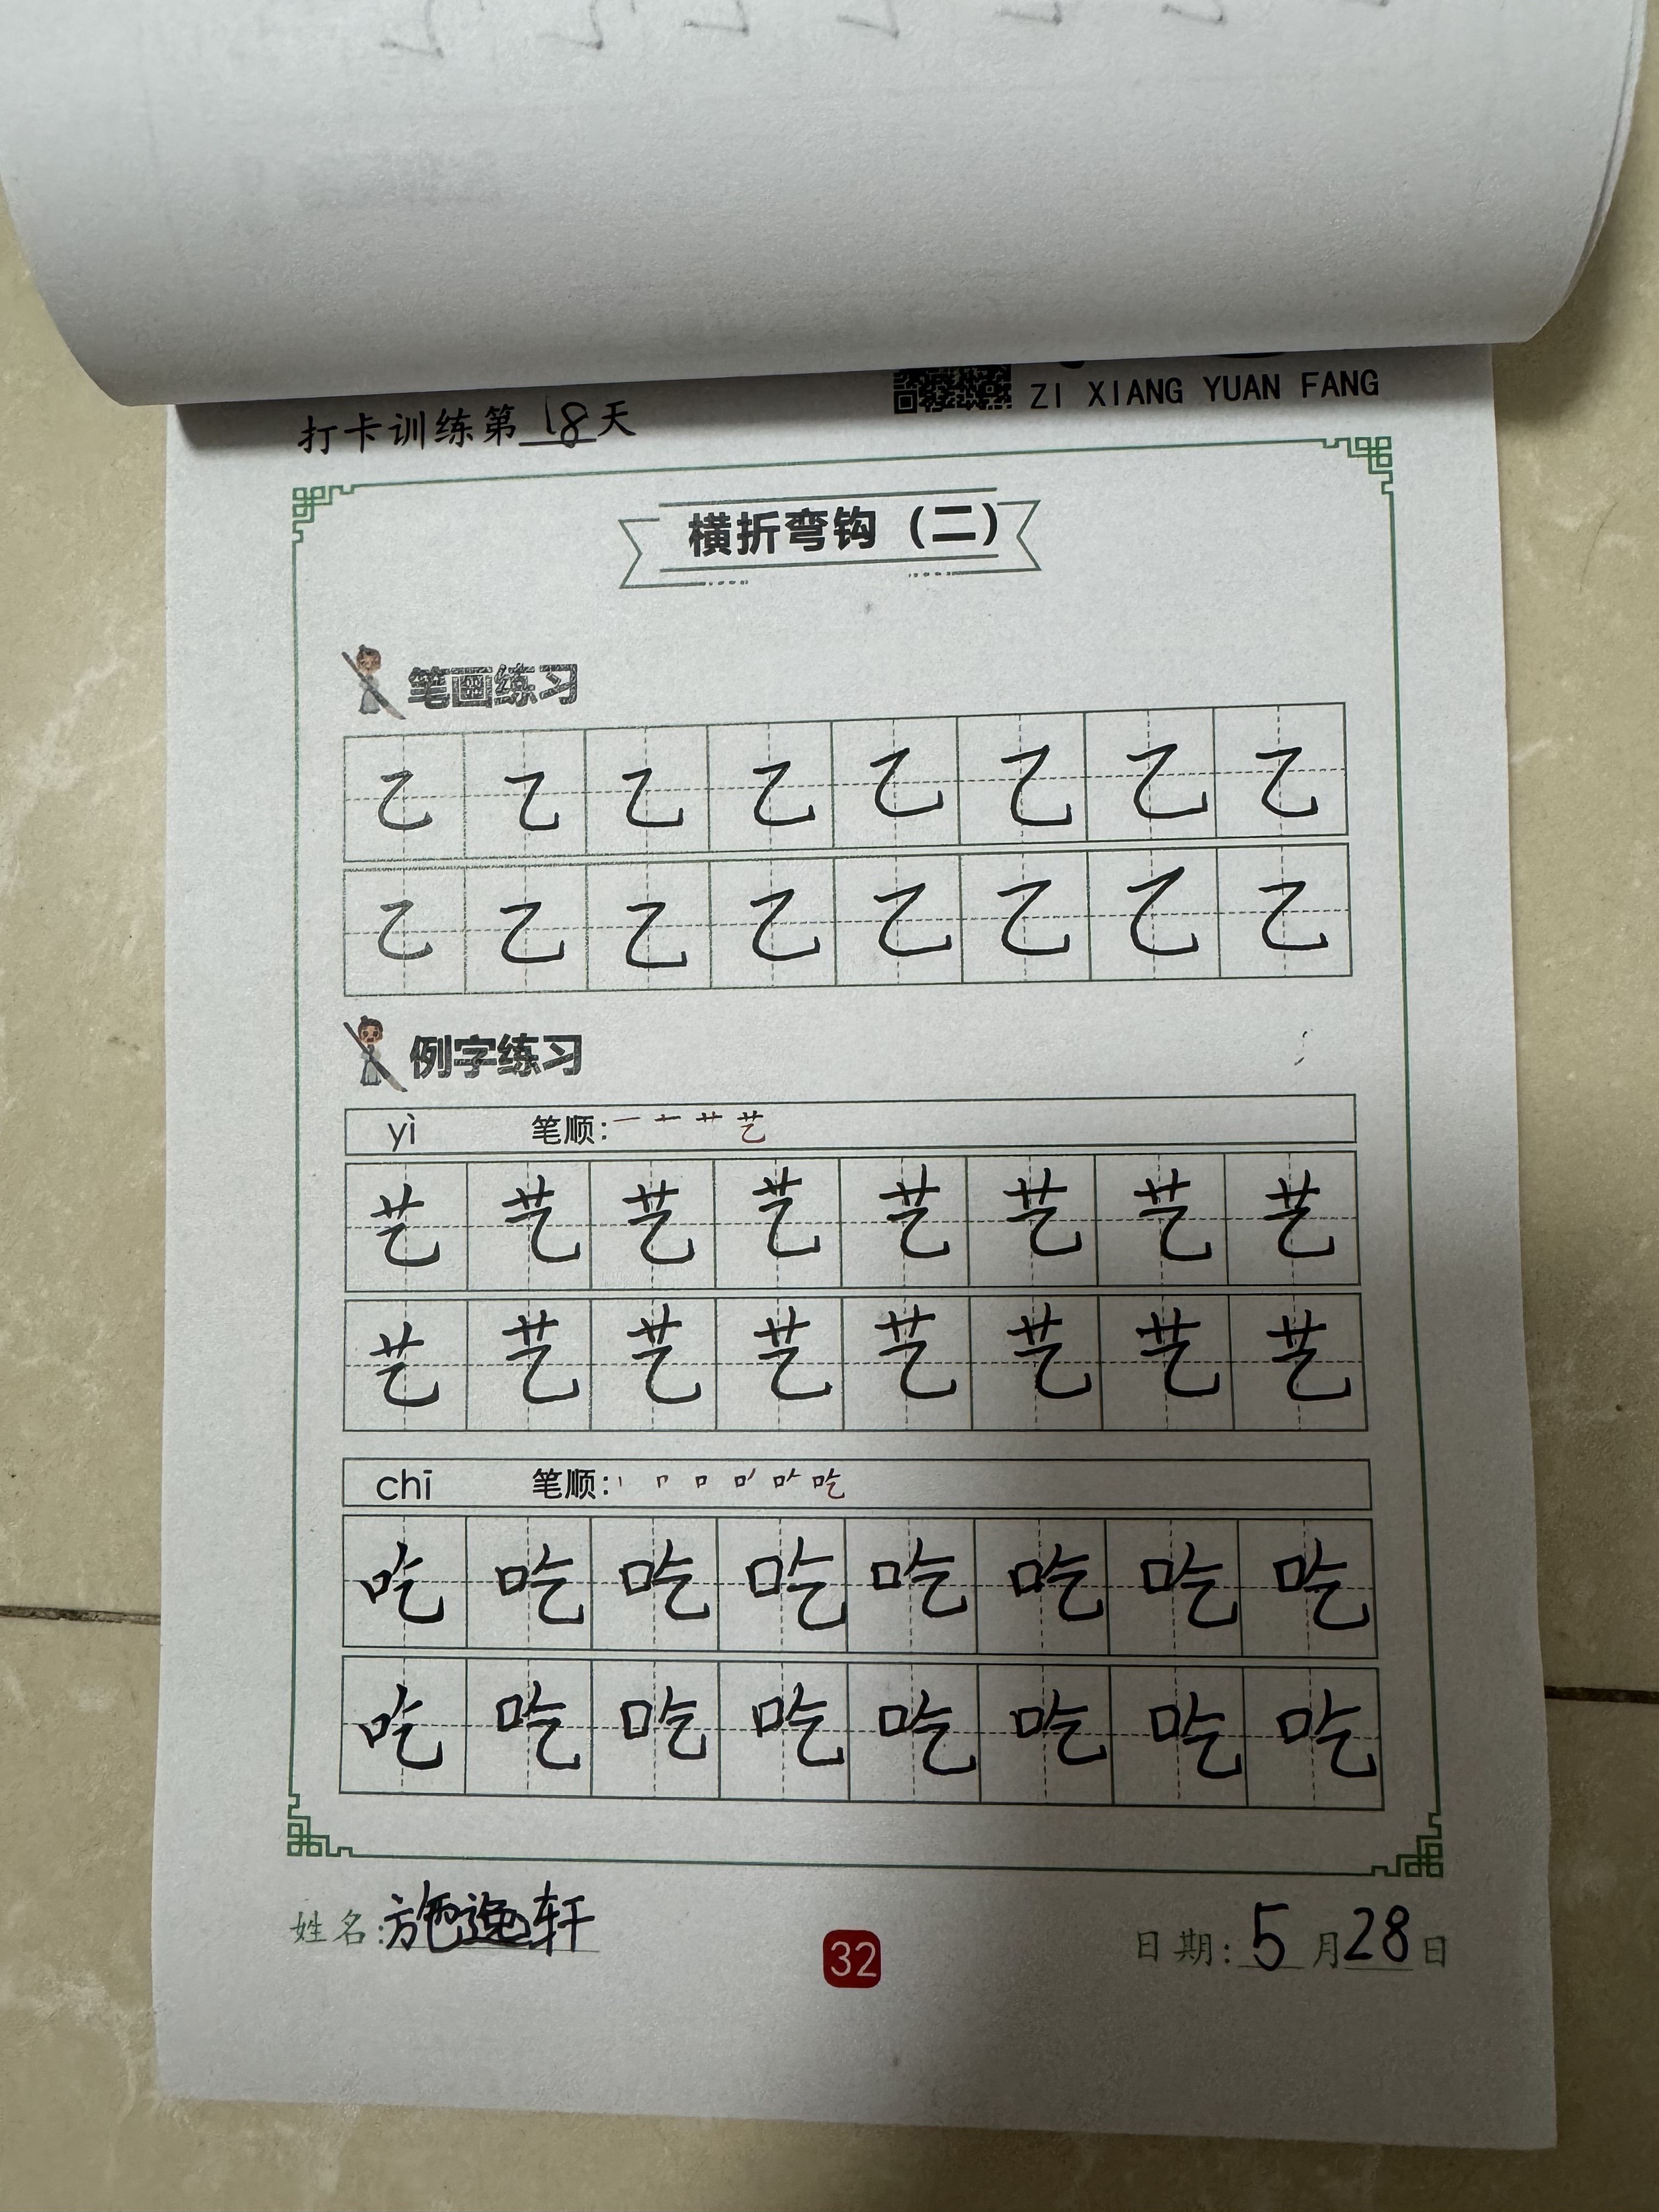 ZI XIANG YUAN FANG
打卡训练第18天
横折弯钩（二）
笔画练习
乙乙乙乙乙乙乙乙
乙乙乙乙乙乙乙乙
例字练习
yì 笔顺: 一 艹 艺
艺艺艺艺艺艺艺艺
艺艺艺艺艺艺艺艺
chī 笔顺: 丨 口 吃
吃吃吃吃吃吃吃吃
吃吃吃吃吃吃吃吃
姓名:施逸轩
32
日期:5月28日